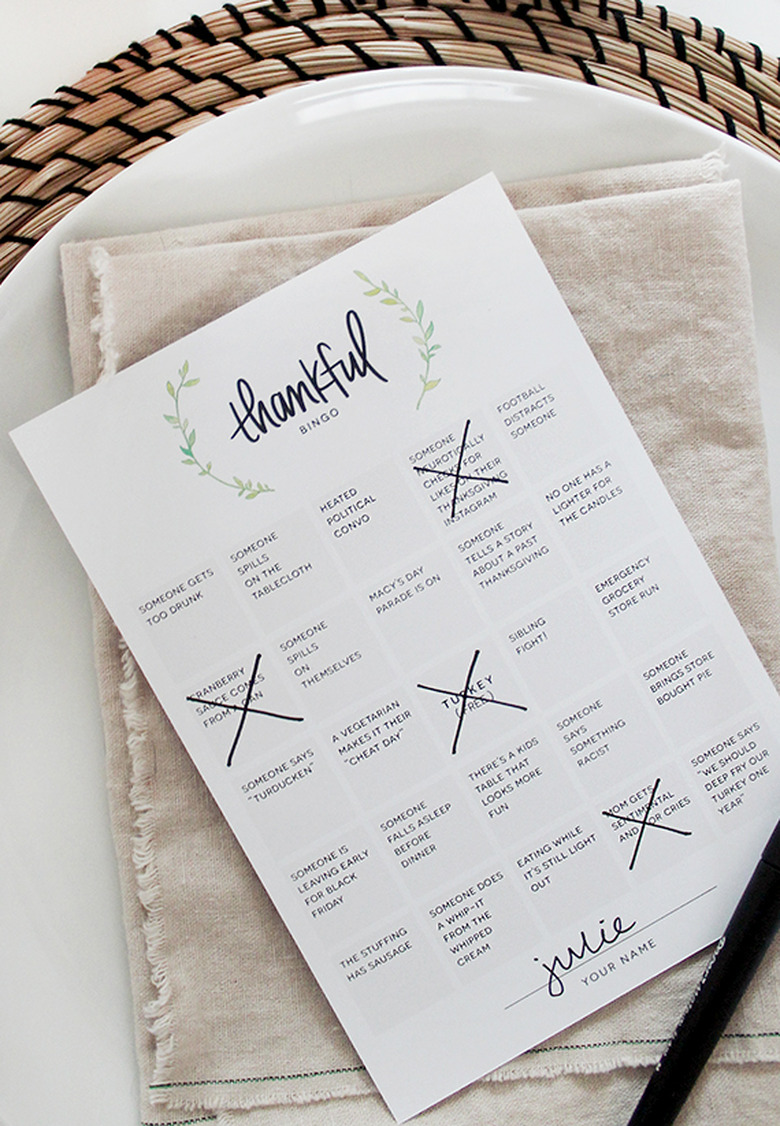 thankful
BINGO
SOMEONE GETS
TOO DRUNK
SOMEONE
SPILLS
ON THE
TABLECLOTH
HEATED
POLITICAL
CONVO
SOMEONE
NEUROTICALLY
CHECKS FOR
LIKES ON THEIR
THANKSGIVING
INSTAGRAM
FOOTBALL
DISTRACTS
SOMEONE
CRANBERRY
SAUCE COMES
FROM A CAN
SOMEONE
SPILLS
ON
THEMSELVES
MACY'S DAY
PARADE IS ON
SOMEONE
TELLS A STORY
ABOUT A PAST
THANKSGIVING
NO ONE HAS A
LIGHTER FOR
THE CANDLES
SOMEONE SAYS
"TURDUCKEN"
A VEGETARIAN
MAKES IT THEIR
"CHEAT DAY"
TURKEY
(FREE)
SIBLING
FIGHT!
EMERGENCY
GROCERY
STORE RUN
SOMEONE IS
LEAVING EARLY
FOR BLACK
FRIDAY
SOMEONE
FALLS ASLEEP
BEFORE
DINNER
THERE'S A KIDS
TABLE THAT
LOOKS MORE
FUN
SOMEONE
SAYS
SOMETHING
RACIST
SOMEONE
BRINGS STORE
BOUGHT PIE
THE STUFFING
HAS SAUSAGE
SOMEONE DOES
A WHIP-IT
FROM THE
WHIPPED
CREAM
EATING WHILE
IT'S STILL LIGHT
OUT
MOM GETS
SENTIMENTAL
AND/OR CRIES
SOMEONE SAYS
"WE SHOULD
DEEP FRY OUR
TURKEY ONE
YEAR"
julie
YOUR NAME